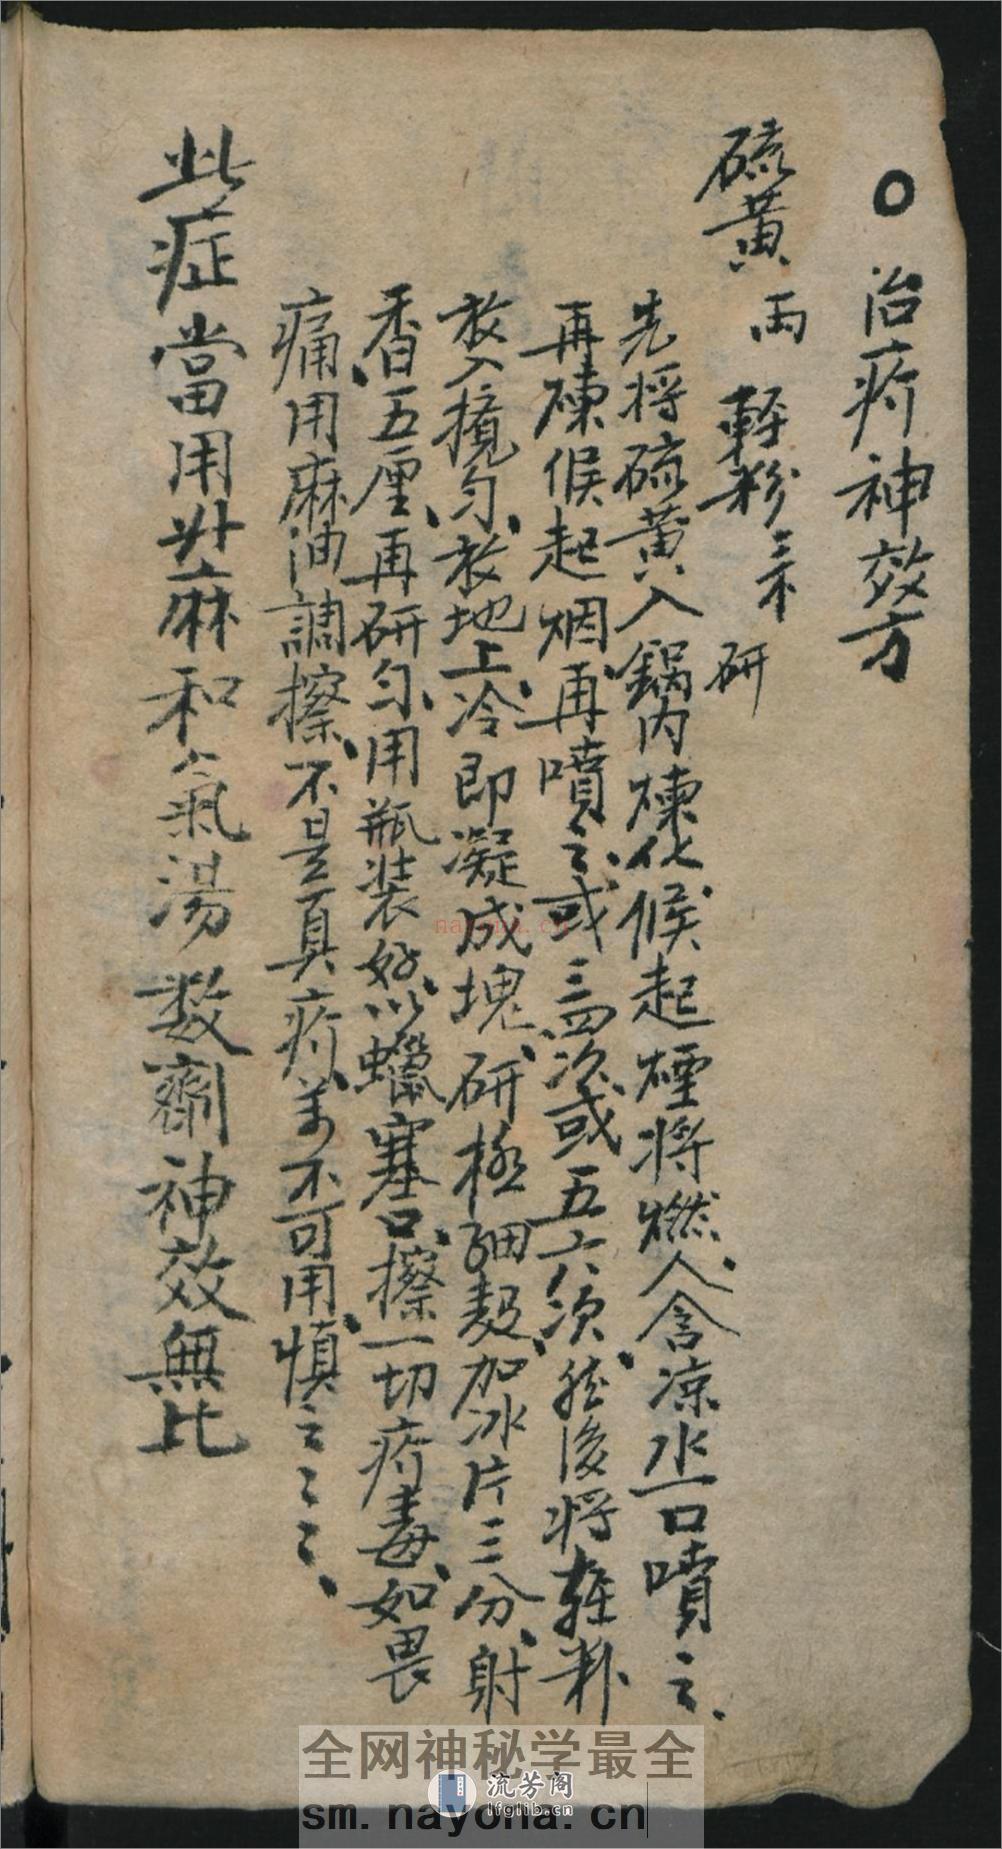 〇 治疔神效方
硫黄 両 輕粉 三不 研
先将硫黄入鍋内煉化候起煙将燃人含凉水一口噴之
再煉候起烟再噴之或三四次或五六次然後将輕粉
放入攪匀放地上冷即凝成塊研極細麩加冰片三分射
香五厘再研匀用瓶装好以蠟塞口擦一切疔毒如畏
痛用麻油調擦不是真疔萬不可用慎之之之
此症當用升麻和氣湯数劑神效無比
nayona.cn
全网神秘学最全
流芳阁
lfglib.cn
sm.nayona.cn